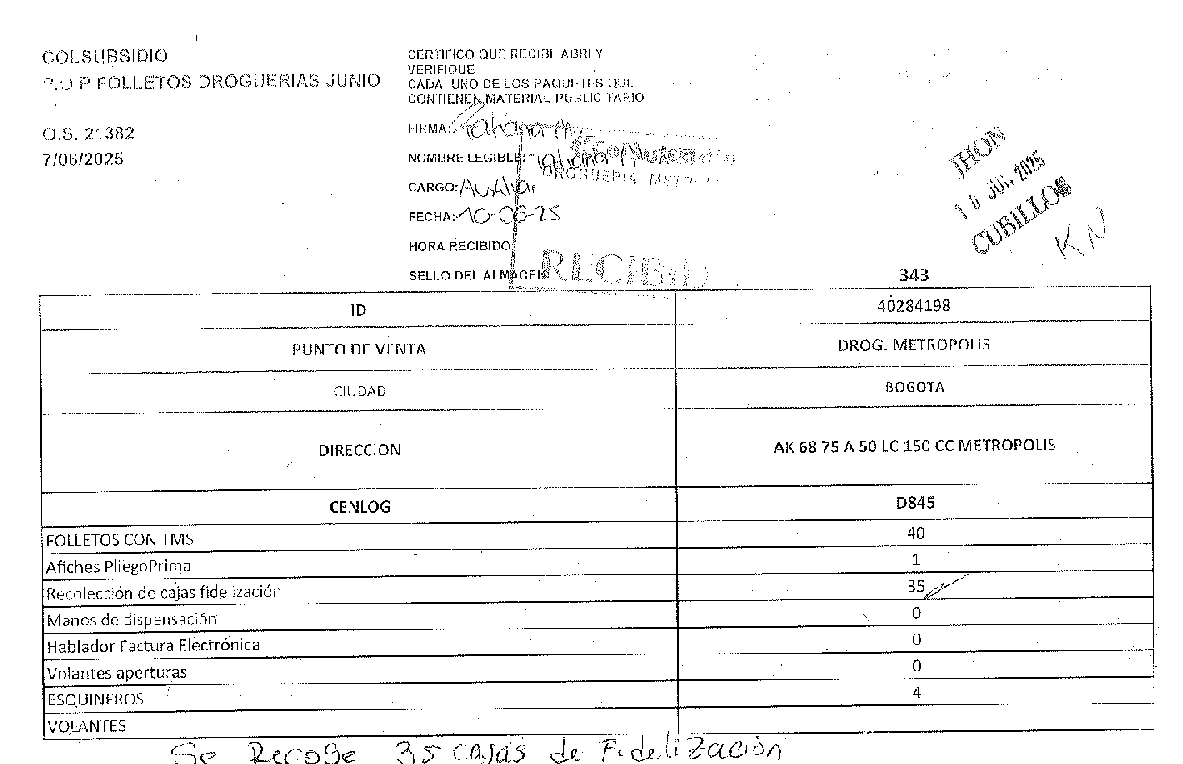 COLSUBSIDIO
P.O.P FOLLETOS DROGUERIAS JUNIO
O.S. 21382
7/06/2025
CERTIFICO QUE RECIBI, ABRI Y
VERIFIQUE
CADA UNO DE LOS PAQUETES QUE
CONTIENEN MATERIAL PUBLICITARIO
FIRMA:
NOMBRE LEGIBLE:
DROGUERIA METROPOLIS
CARGO: Auxiliar
FECHA: 10-06-25
HORA RECIBIDO
SELLO DEL ALMACEN
RECIBID
JHON
10 JUL 2025
CUBILLOS
KN
343
ID 40284198
PUNTO DE VENTA DROG. METROPOLIS
CIUDAD BOGOTA
DIRECCION AK 68 75 A 50 LC 150 CC METROPOLIS
CENLOG D845
FOLLETOS CON TMS 40
Afiches PliegoPrima 1
Recolección de cajas fidelización 35
Manos de dispensación 0
Hablador Factura Electrónica 0
Volantes aperturas 0
ESQUINEROS 4
VOLANTES
Se Recoge 35 cajas de Fidelización